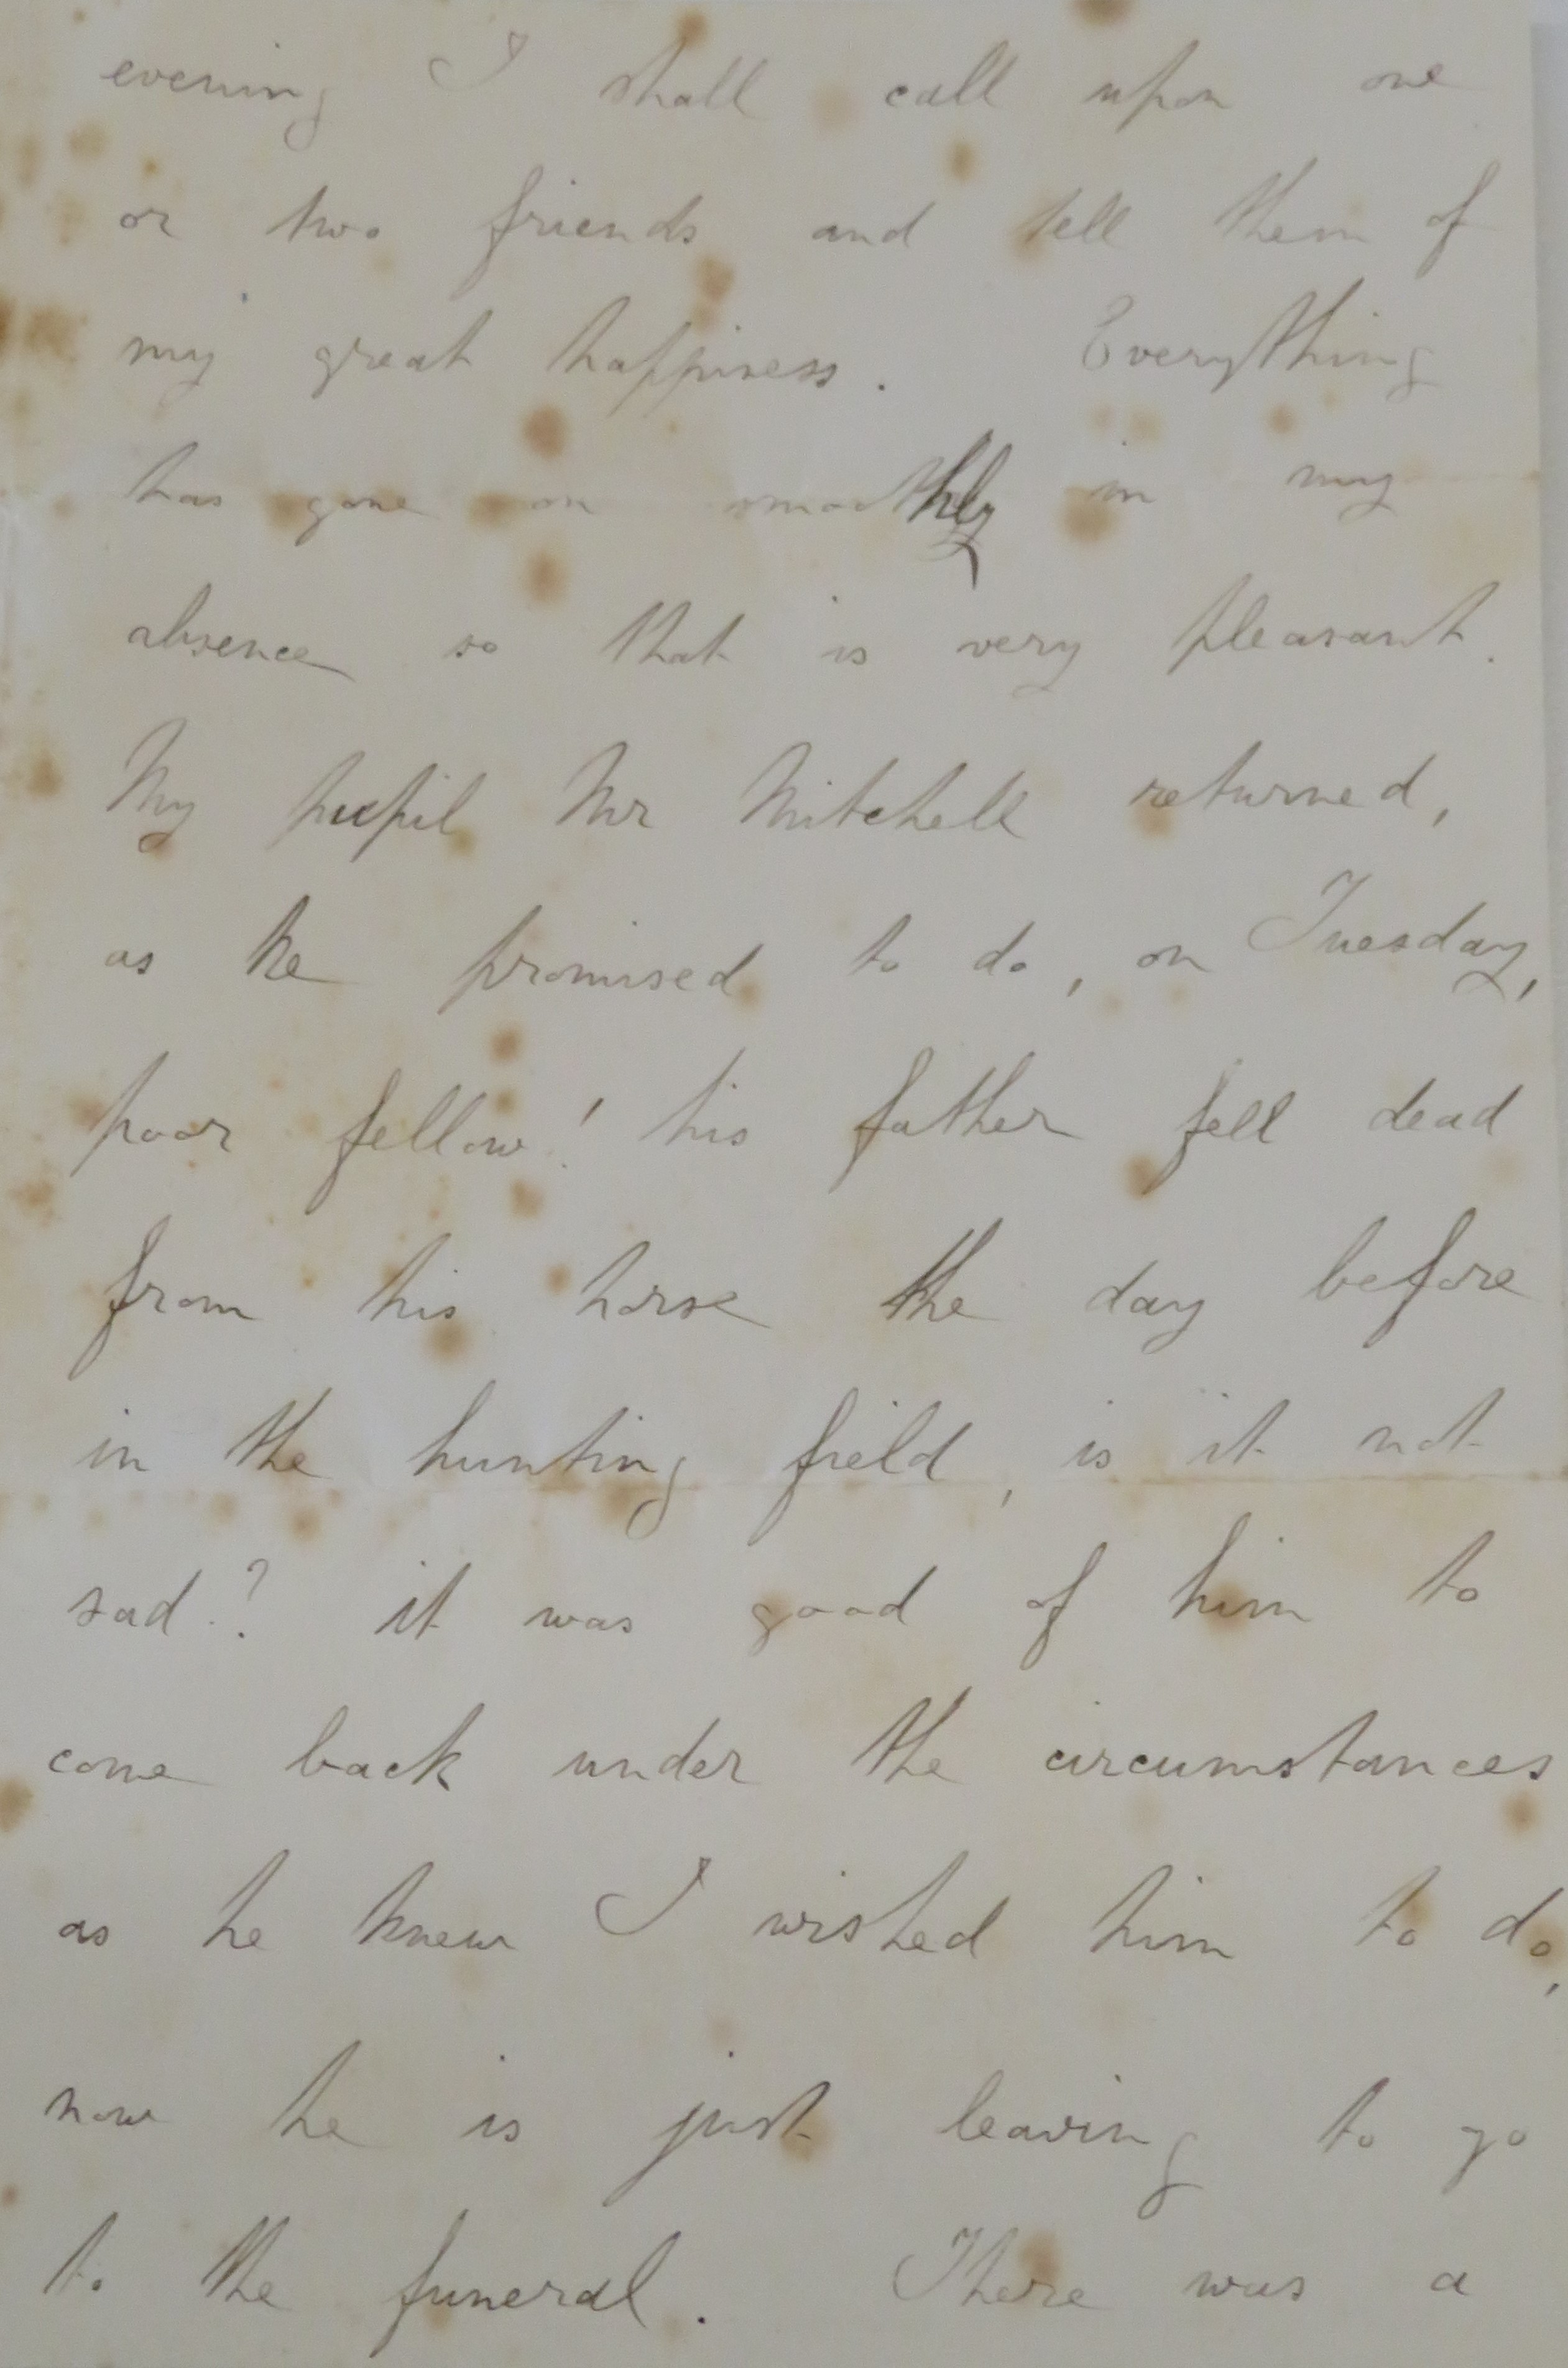 evening I shall call upon one
or two friends and tell them of
my great happiness. Everything
has gone on smoothly in my
absence so that is very pleasant.
My pupil Mr Mitchell returned,
as he promised to do, on Tuesday,
poor fellow! his father fell dead
from his horse the day before
in the hunting field, is it not
sad? it was good of him to
come back under the circumstances
as he knew I wished him to do,
now he is just leaving to go
to the funeral. There was a